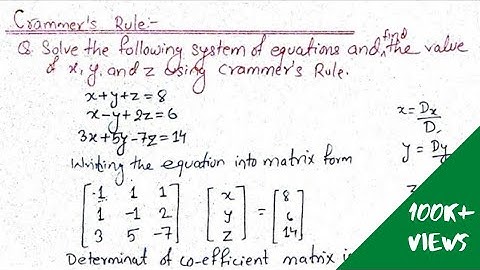 Crammer's Rule:-
Q. Solve the following system of equations and find the value
of x, y, and z using Crammer's Rule.
x+y+z=8
x-y+2z=6
3x+5y-7z=14
x = Dx/D
y = Dy
z
Writing the equation into matrix form
[1 1 1] [x] [8]
[1 -1 2] [y] = [6]
[3 5 -7] [z] [14]
Determinat of co-efficient matrix i
100K+
VIEWS